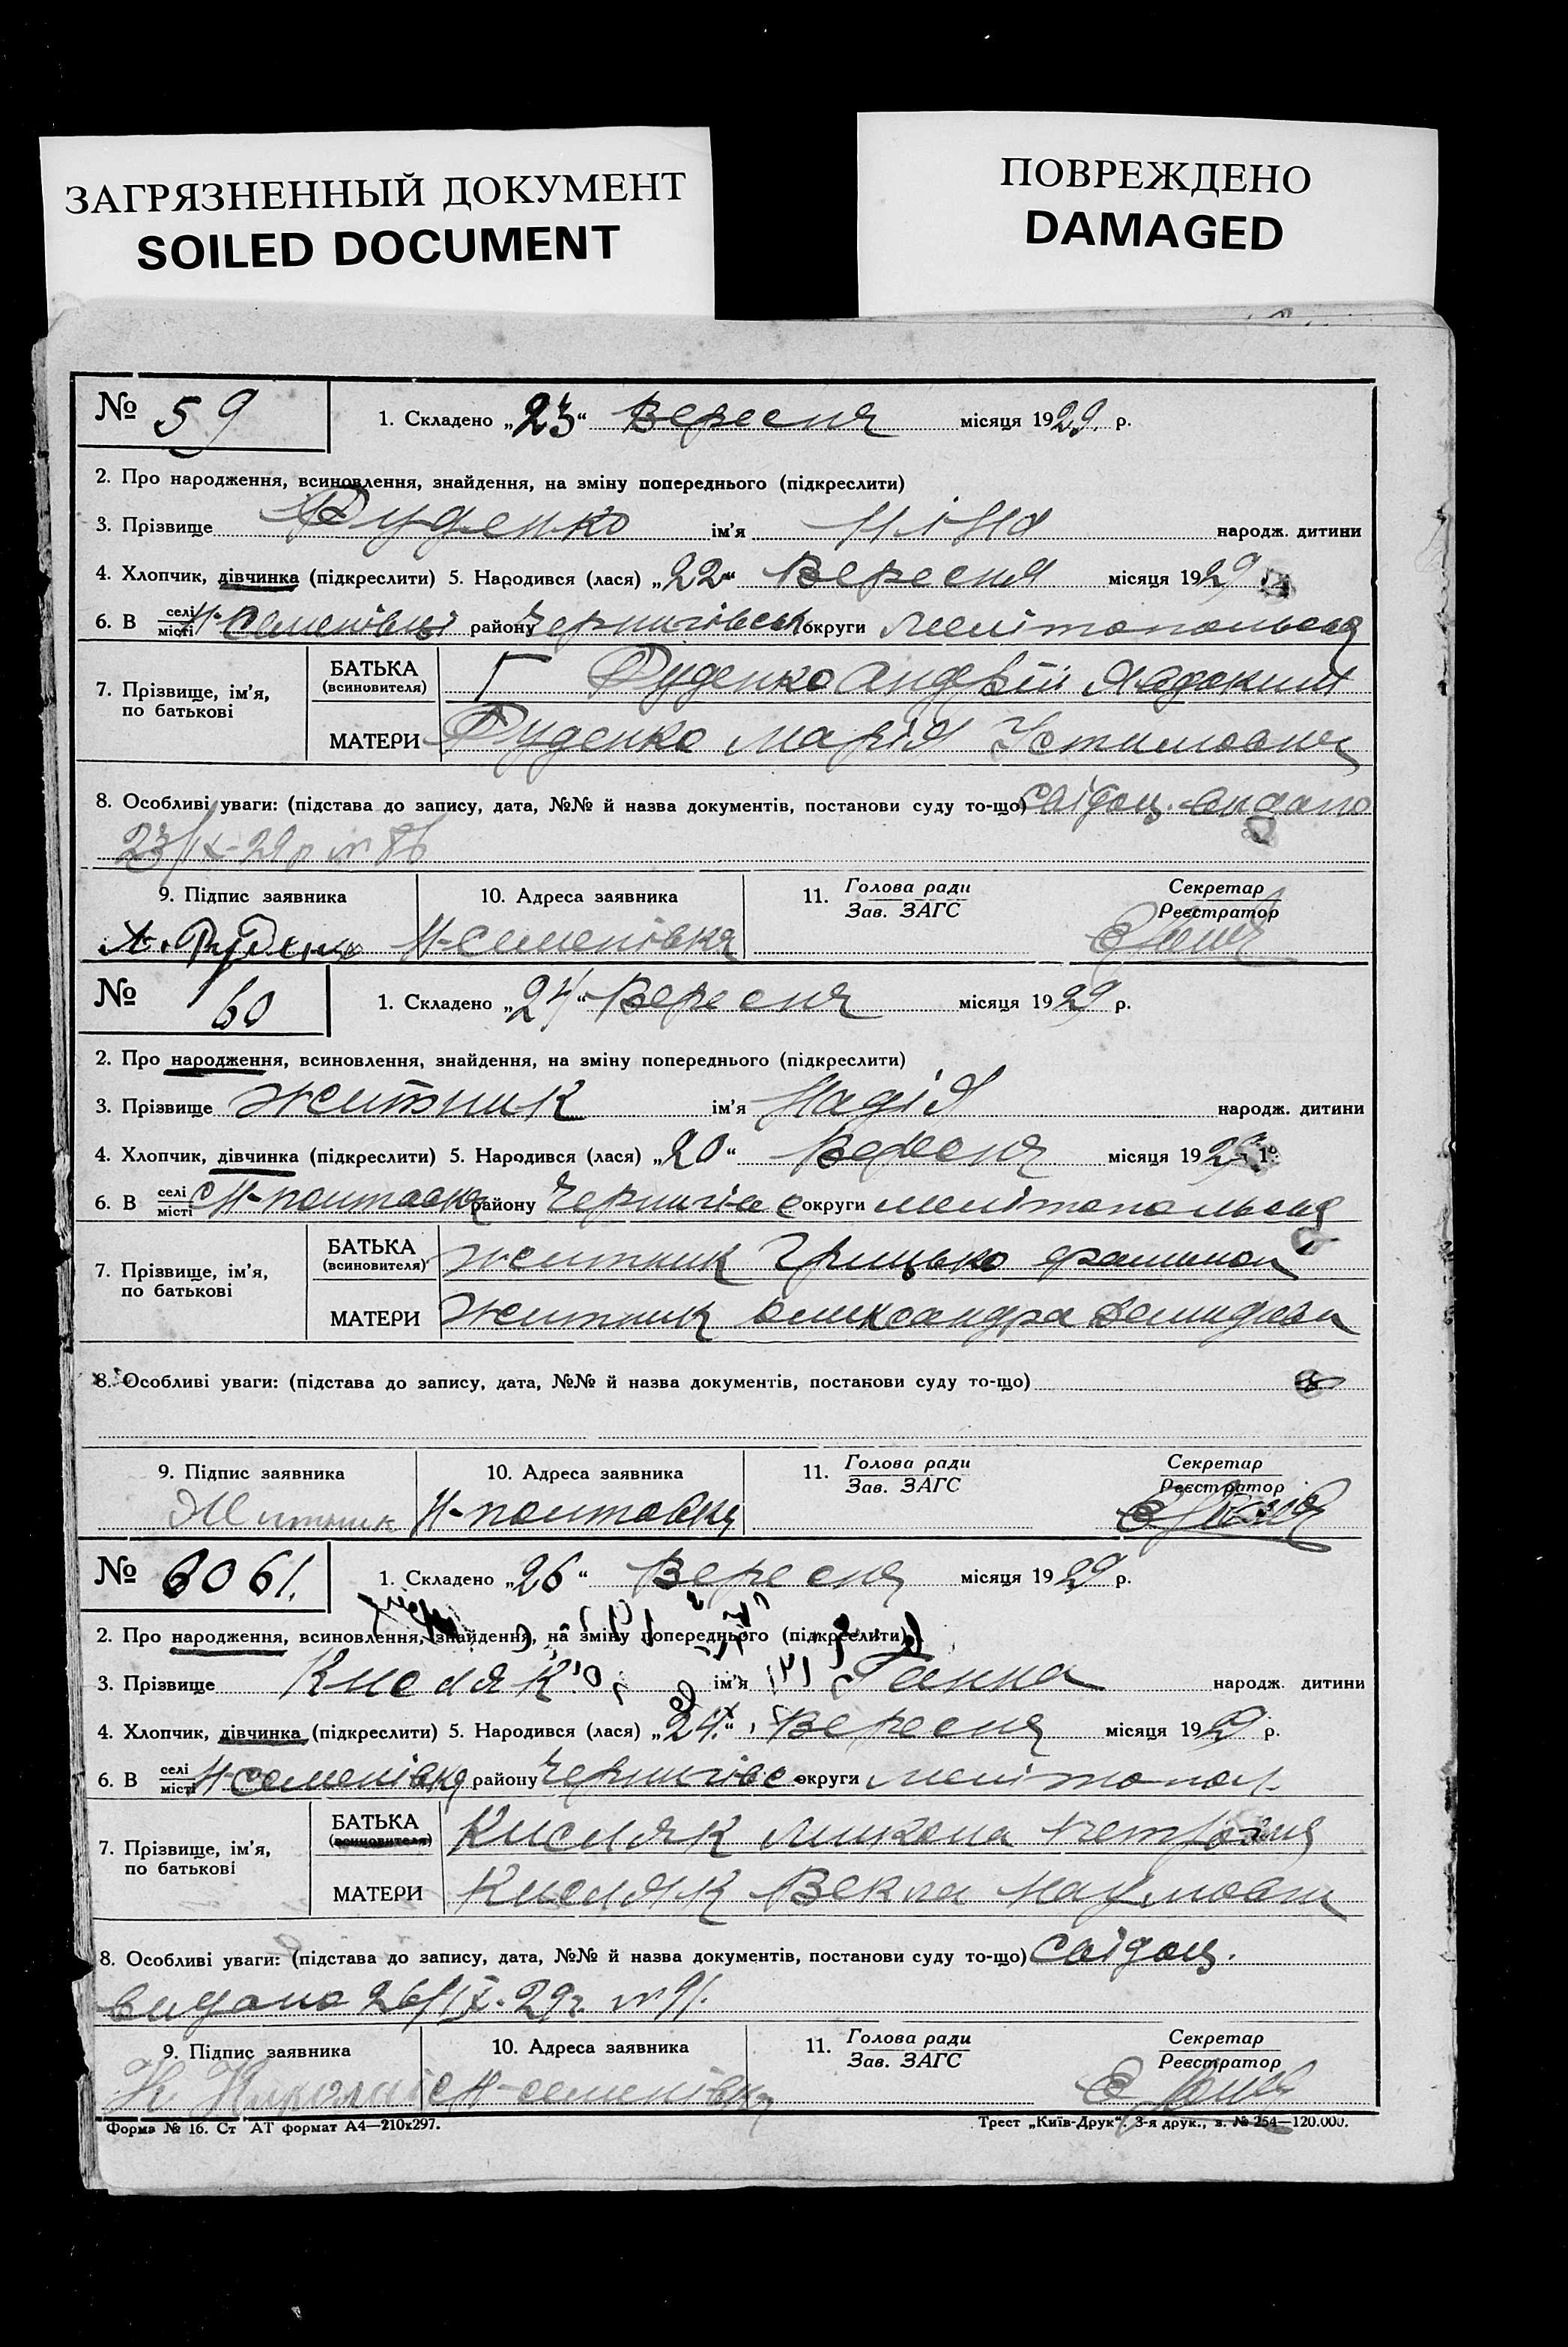 ЗАГРЯЗНЕННЫЙ ДОКУМЕНТ
SOILED DOCUMENT
ПОВРЕЖДЕНО
DAMAGED
№ 59
1. Складено „23“ Вересня місяця 1929. р.
2. Про народження, всиновлення, знайдення, на зміну попереднього (підкреслити)
3. Прізвище Руденко ім’я Ніна народж. дитини
4. Хлопчик, дівчинка (підкреслити) 5. Народився (лася) „22“ Вересня місяця 1929
6. В селі місті Н-Семенівці району Чернигівськ округи Мелітопольська
7. Прізвище, ім’я, по батькові
БАТЬКА (всиновителя) Руденко Андрій
МАТЕРИ Руденко Марія Устимовна
8. Особливі уваги: (підстава до запису, дата, №№ й назва документів, постанови суду то-що) Свідоц. видано
23/IX-29р № 86
9. Підпис заявника
10. Адреса заявника
11. Голова ради Зав. ЗАГС
Секретар Реєстратор
Н-Семенівка
№ 60
1. Складено „24“ Вересня місяця 1929 р.
2. Про народження, всиновлення, знайдення, на зміну попереднього (підкреслити)
3. Прізвище Житник ім’я Надія народж. дитини
4. Хлопчик, дівчинка (підкреслити) 5. Народився (лася) „20“ Вересня місяця 1929
6. В селі місті Н-Полтавка району Чернигівс округи Мелітопольська
7. Прізвище, ім’я, по батькові
БАТЬКА (всиновителя) Житник Грицько
МАТЕРИ Житник Олександра
8. Особливі уваги: (підстава до запису, дата, №№ й назва документів, постанови суду то-що)
9. Підпис заявника
10. Адреса заявника
11. Голова ради Зав. ЗАГС
Секретар Реєстратор
Житник Н-Полтавка
№ 60 61.
1. Складено „26“ Вересня місяця 1929 р.
2. Про народження, всиновлення, знайдення, на зміну попереднього (підкреслити)
3. Прізвище Кисляк ім’я Ганна народж. дитини
4. Хлопчик, дівчинка (підкреслити) 5. Народився (лася) „24“ Вересня місяця 1929 р.
6. В селі місті Н-Семенівка району Чернигівс округи Мелітопол.
7. Прізвище, ім’я, по батькові
БАТЬКА (всиновителя) Кисляк Микола
МАТЕРИ Кисляк Векла Наумовн
8. Особливі уваги: (підстава до запису, дата, №№ й назва документів, постанови суду то-що) Свідоц.
видано 26/IX-29г. № 91.
9. Підпис заявника
10. Адреса заявника
11. Голова ради Зав. ЗАГС
Секретар Реєстратор
Н-Семенівка
Форма № 16. Ст АТ формат А4—210х297.
Трест „Київ-Друк“. 3-я друк., з. № 254—120.000.